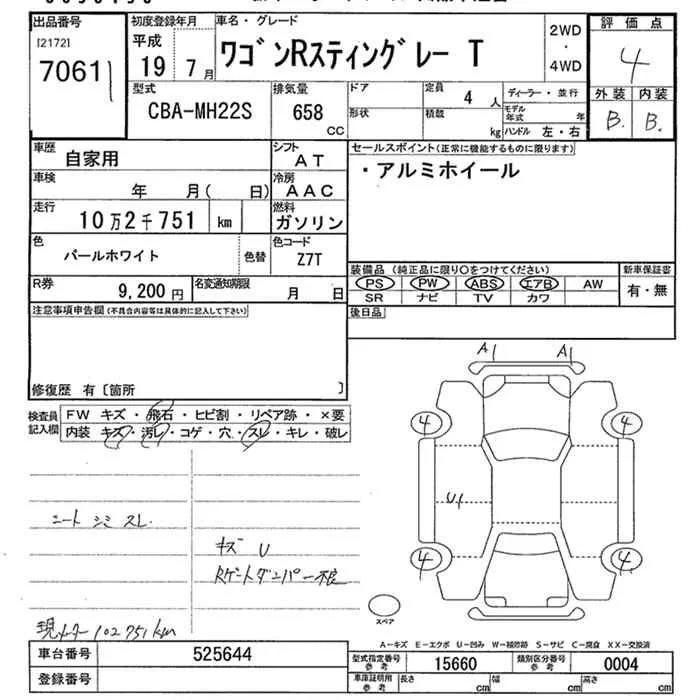 出品番号 初度登録年月 車名・グレード 評価点
[2172] 平成 ワゴンRスティングレー T 2WD
7061 19 7月 ・ 4
4WD
型式 排気量 ドア 定員 4 人 ディーラー・並行 外装 内装
CBA-MH22S 658 形状 積載 モデル年式 年 B. B.
CC kg ハンドル 左・右
車歴 自家用 シフト AT セールスポイント(正常に機能するものに限ります)
車検 年 月( 日) 冷房 AAC ・アルミホイール
走行 10万2千751 km 燃料 ガソリン
色 パールホワイト 色替 色コード Z7T
装備品 (純正品に限り○をつけてください) 新車保証書
R券 9,200円 名変通知期限 月 日 PS PW ABS エアB AW 有・無
SR ナビ TV カワ
注意事項申告欄(不具合内容等は具体的に記入して下さい) 後日品
修復歴 有〔箇所 〕
A1 A1
検査員記入欄 FW キズ・飛石・ヒビ割・リペア跡・×要
内装 キズ・汚レ・コゲ・穴・スレ・キレ・破レ
4 4
U1
シート シミ スレ
キズ U
Rゲートダンパー不良
4 4
スペア
現メーター102751km
A-キズ E-エクボ U-凹み W-補修跡 S-サビ C-腐食 XX-交換済
車台番号 525644 型式指定番号 参考 15660 類別区分番号 参考 0004
登録番号 車庫証明用 参考 長さ cm 幅 cm 高さ cm